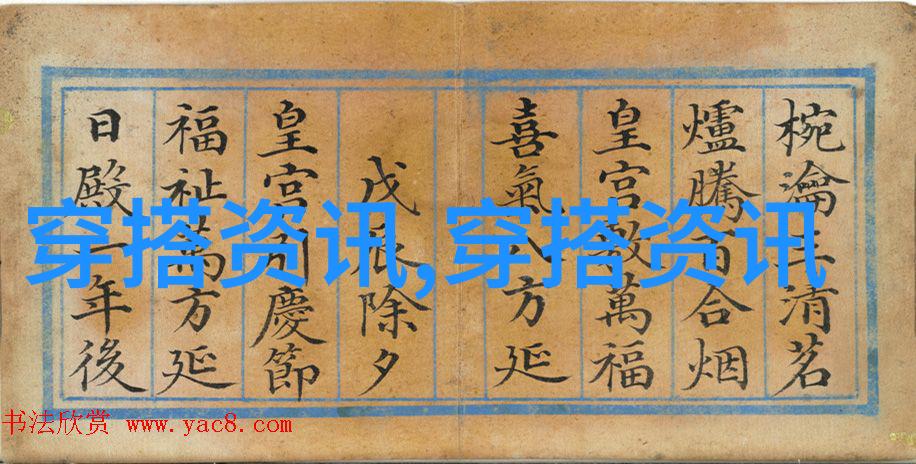 椀瀹三清茗
爐騰百合烟
皇宮敷萬福
喜氣八方延
戊辰除夕
皇宮慶節
福祉萬方延
日殿一年後
穿搭资讯,穿搭资讯
书法欣赏 www.yac8.com